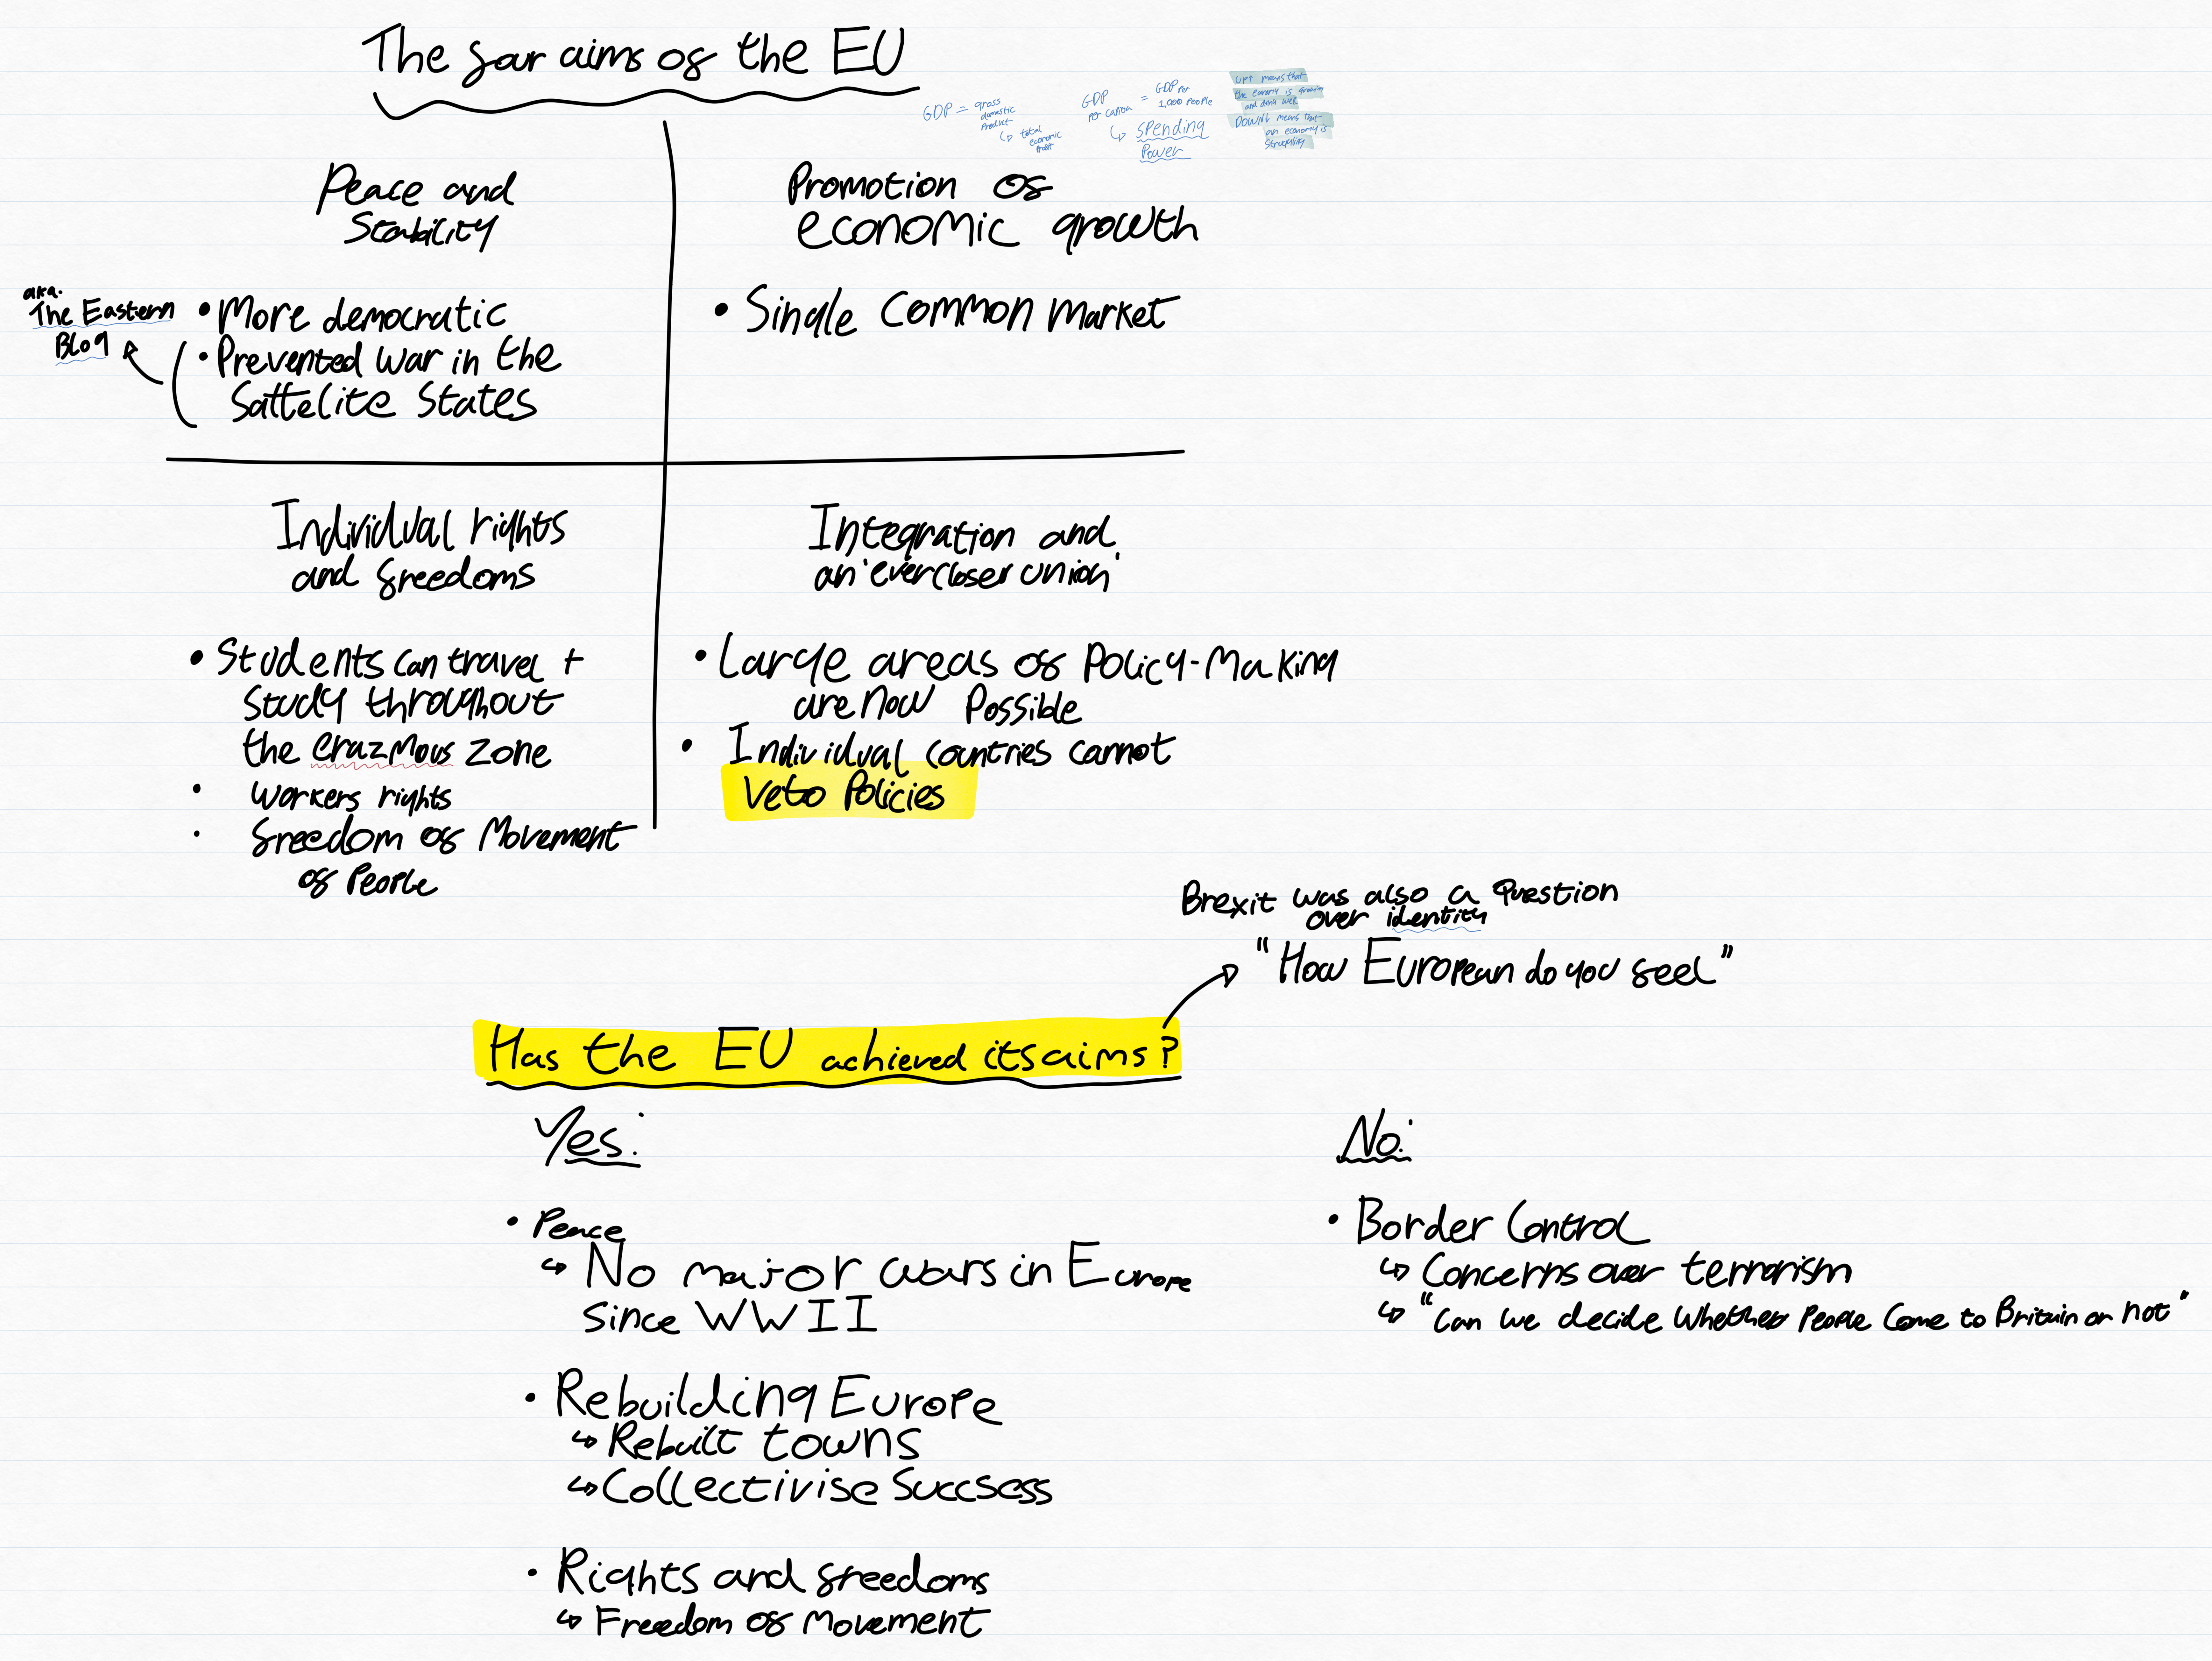 The four aims of the EU
GDP = gross
domestic
Product
↳ total
economic
GDP
per capita
= GDP per
1,000 people
↳ spending
Power
UP↑ means that
the economy is growing
and doing well
DOWN↓ means that
an economy is
struggling
Peace and
Stability
aka.
The Eastern
Bloq
• More democratic
• Prevented war in the
Sattelite States
Promotion of
economic growth
• Single Common Market
Individual rights
and freedoms
• Students can travel +
study throughout
the erazmous zone
• workers rights
• freedom of Movement
of People
Integration and
an 'ever closer union'
• Large areas of Policy-Making
are now Possible
• Individual countries cannot
Veto Policies
Brexit was also a Question
over identity
"How European do you feel"
Has the EU achieved its aims?
Yes:
• Peace
↳ No major wars in Europe
since WWII
• Rebuilding Europe
↳ Rebuilt towns
↳ Collectivise Succsess
• Rights and freedoms
↳ Freedom of Movement
No:
• Border Control
↳ Concerns over terrorism
↳ "Can we decide whether People Come to Britain or not"